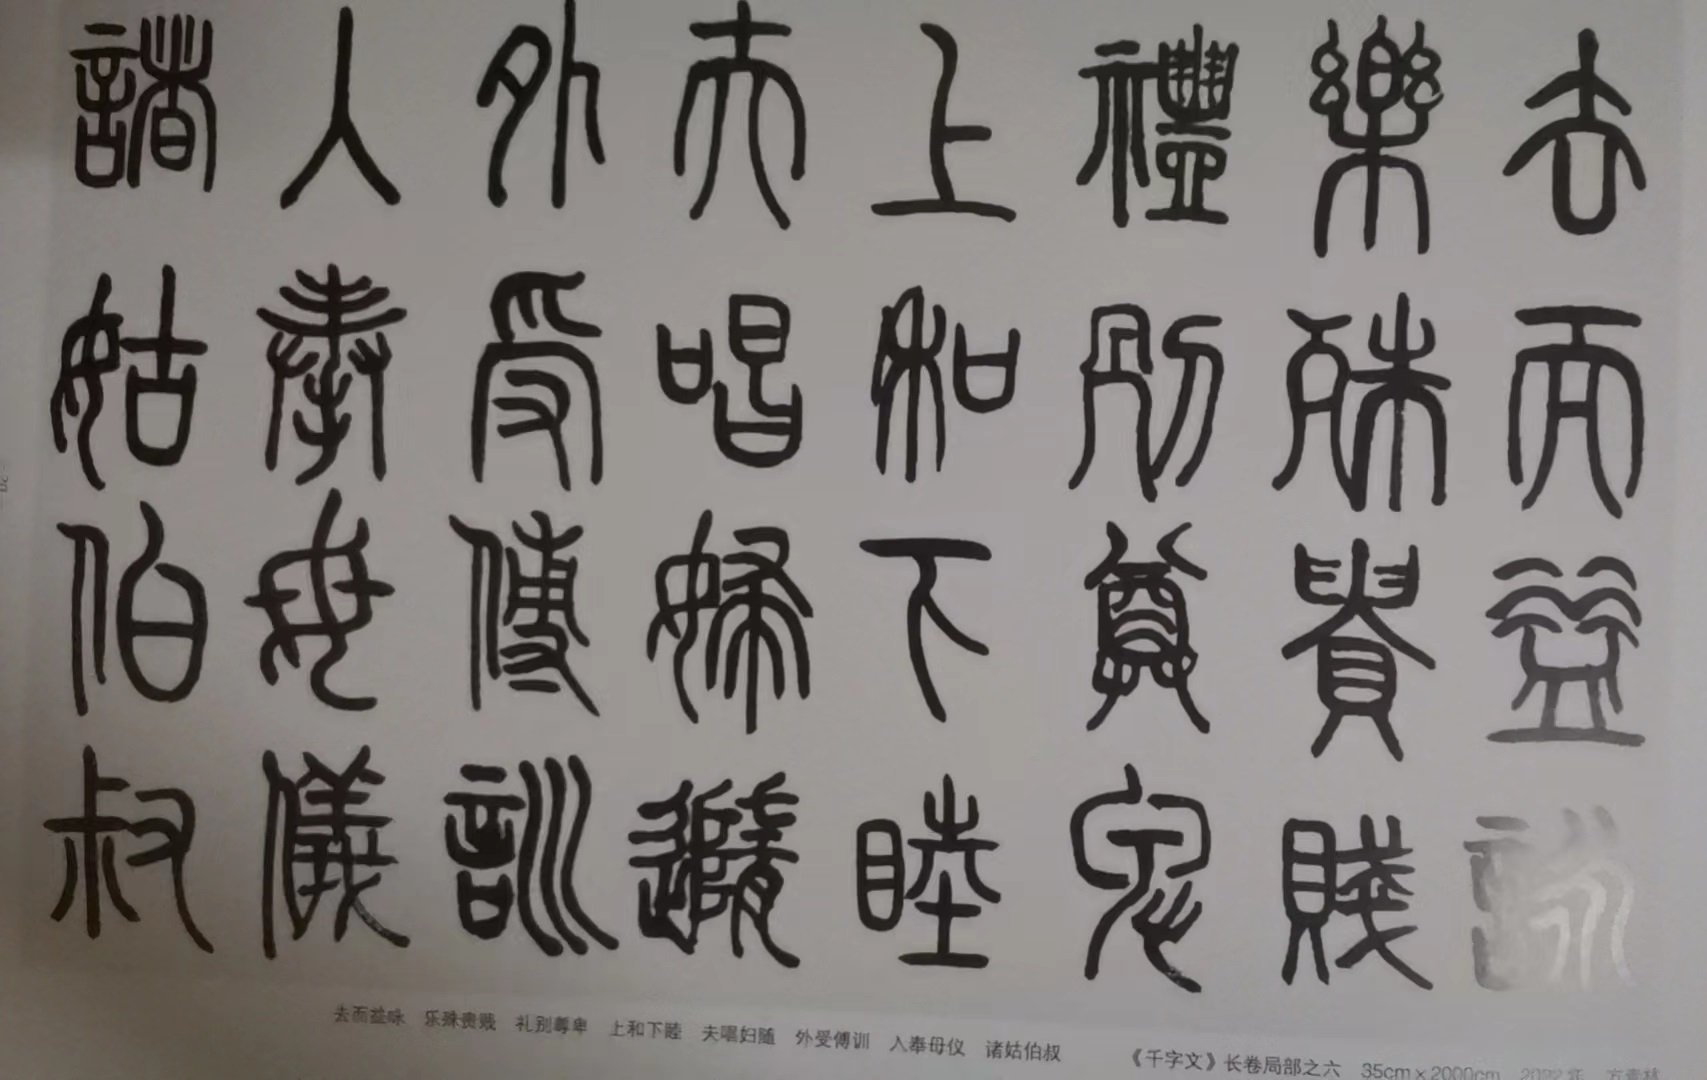 去而益詠
樂殊貴賤
禮別尊卑
上和下睦
夫唱婦隨
外受傅訓
入奉母儀
諸姑伯叔
去而益咏 乐殊贵贱 礼别尊卑 上和下睦 夫唱妇随 外受傅训 入奉母仪 诸姑伯叔 《千字文》长卷局部之六 35cm×2000cm